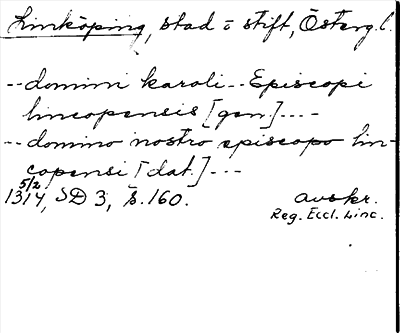 Linköping, stad o stift, Österg.l.
-- domini karoli -- Episcopi
lincopensis [gen.] ----
-- domino nostro episcopo lin-
copensi [dat.] ---
5/2 1314, SD 3, s. 160. avskr.
Reg. Eccl. Linc.